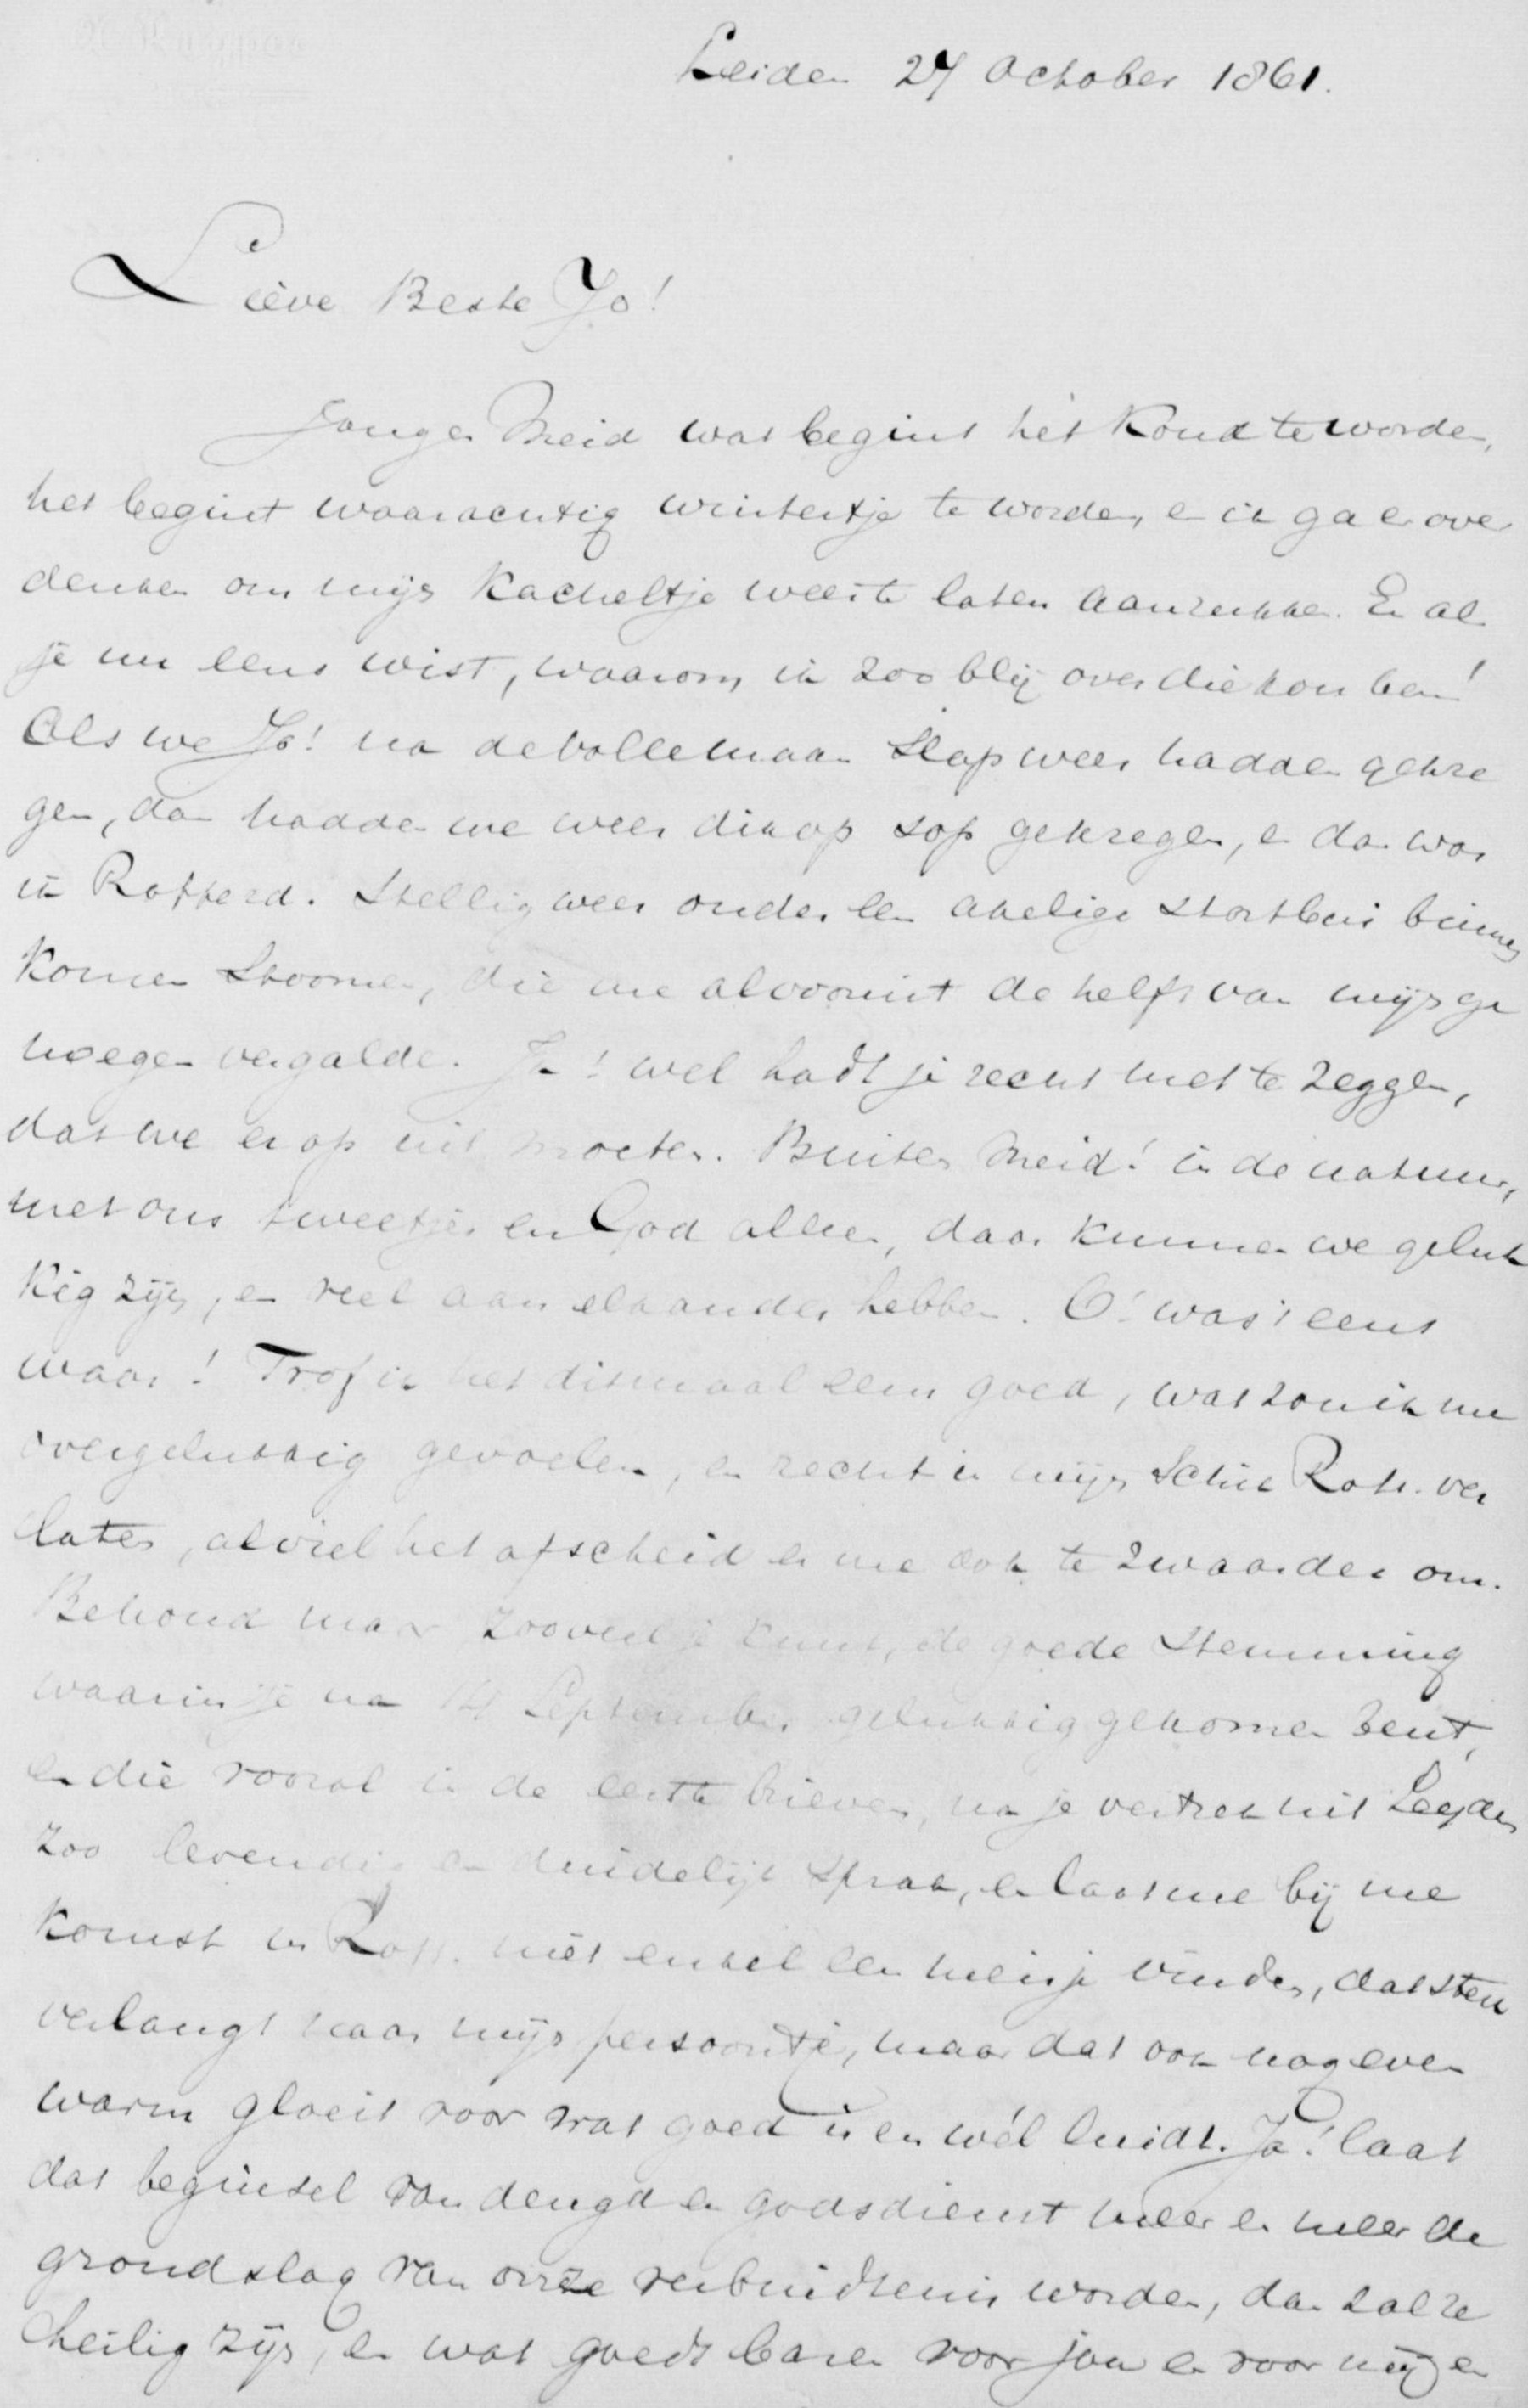 Leiden 27 October 1861.
Lieve Beste Jo!
Jonge Meid wat begint het Koud te worden,
het begint waarachtig wintertje te worden, en ik ga er over
denken om mijn Kacheltje weer te laten aanrukken. En als
je nu eens wist, waarom ik zoo blij over die kou ben!
Als we Jo! na de volle maan slap weer hadden gekre
gen, dan hadden we weer dik op sop gekregen, en dan was
ik Rotterd. Stellig weer onder een akelige stortbui binnen
Komen Stoomen, die me alvooruit de helft van mijn ge
noegen vergalde. Jo! wel hadt je recht met te zeggen,
dat we er op uit moeten. Buiten Meid! in de natuur,
met ons tweetjes en God alleen, daar kunnen we geluk
kig zijn, en veel aan elkander hebben. O! was 't eens
waar! Trof ik het ditmaal eens goed, wat zou ik me
overgelukkig gevoelen, en recht in mijn schik Rott. ver
laten, al viel het afscheid er me ook te zwaarder om.
Behoud maar zooveel je kunt, de goede Stemming
waarin je na 14 September gelukkig gekomen bent,
en die vooral in de eerste brieven, na je vertrek uit Leyden
zoo levendig en duidelijk sprak, en laat me bij me
komst in Rott. niet enkel een meisje vinden, dat sterk
verlangt naar mijn persoontje, maar dat ook nog even
warm gloeit voor wat goed is en wél luidt. Jo! laat
dat beginsel van deugd en godsdienst meer en meer de
grondslag van onze verbindtenis worden, dan zal ze
heilig zijn, en wat goeds baren voor jou en voor mij en